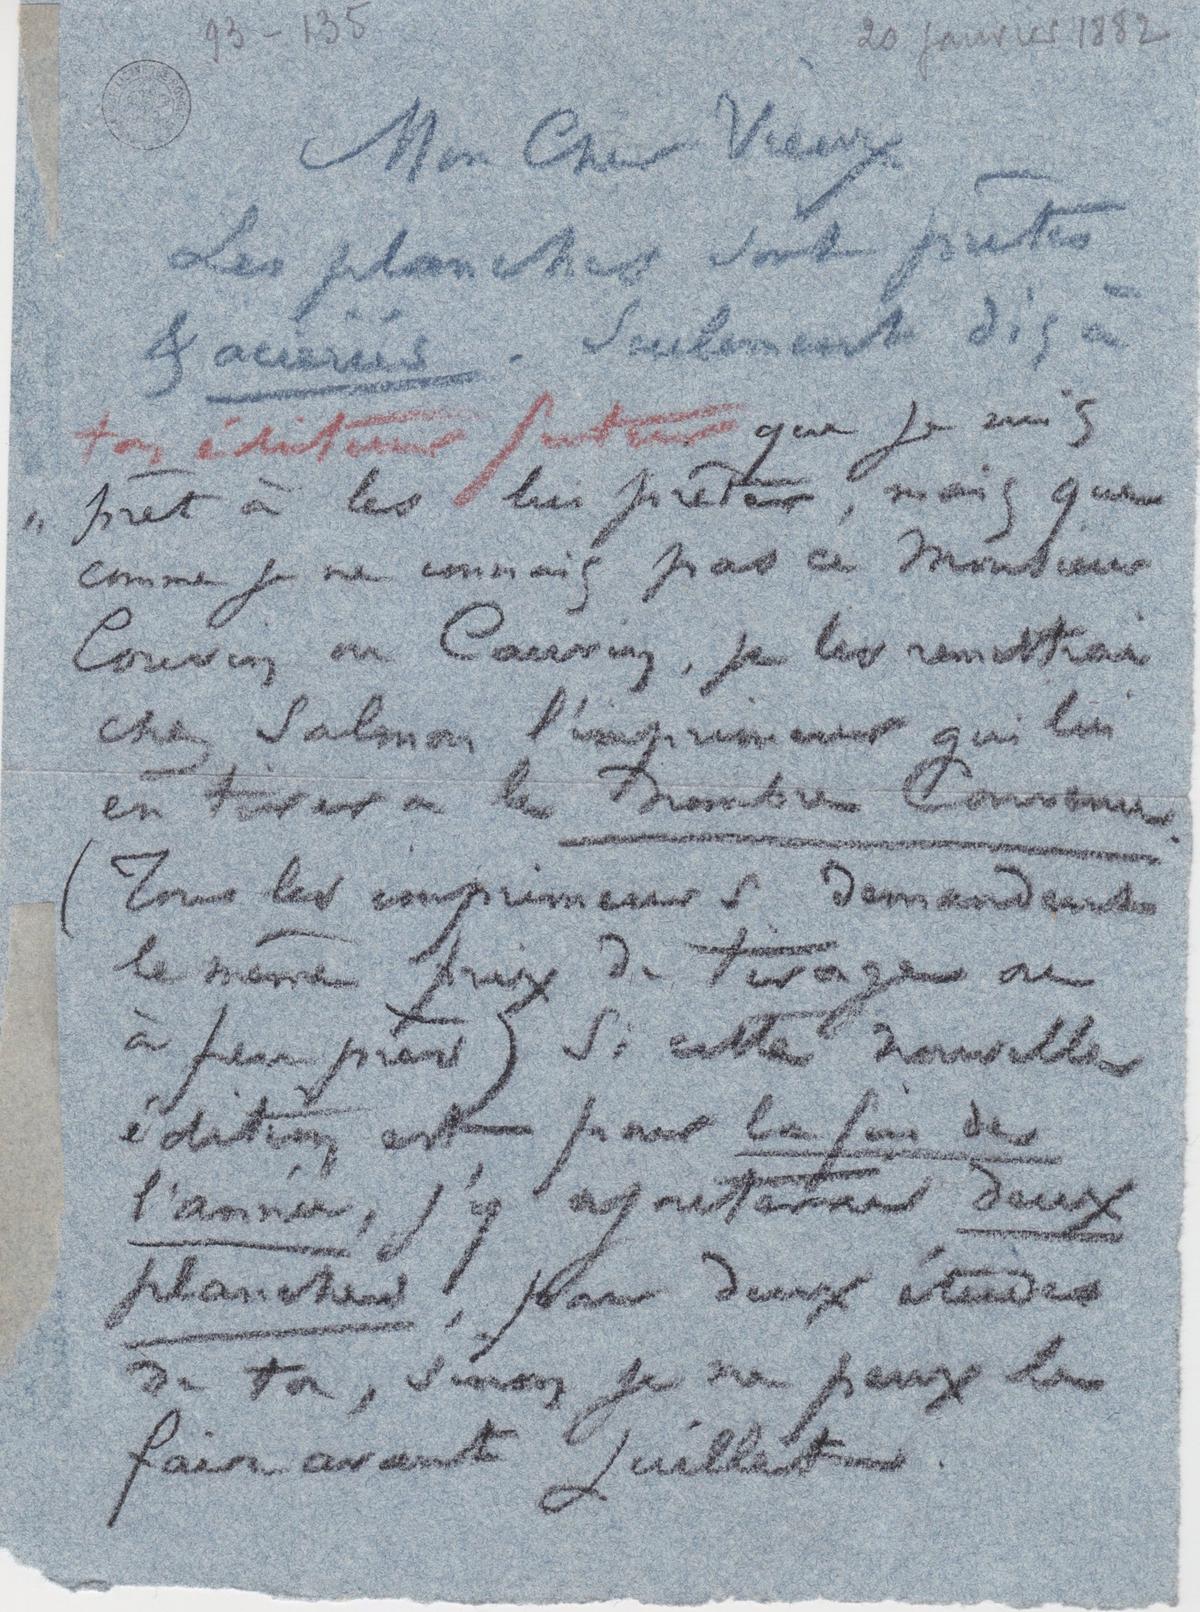 93 - 135
20 janvier 1882
Mon Cher Vieux
Les planches sont prêtes
& acierées. Seulement dis à
ton éditeur futur que je suis
" prêt à les lui prêter, mais que
comme je ne connais pas ce Monsieur
Couvin ou Cauvin, je les remettrai
chez Salmon l'imprimeur qui lui
en tirera le Nombre Convenu.
(Tous les imprimeurs demandent
le même prix de tirage ou
à peu près) Si cette nouvelle
édition est pour la fin de
l'année, j'y ajouterai deux
planches, pour deux études
de toi, sinon je ne peux le
faire avant Juillet.